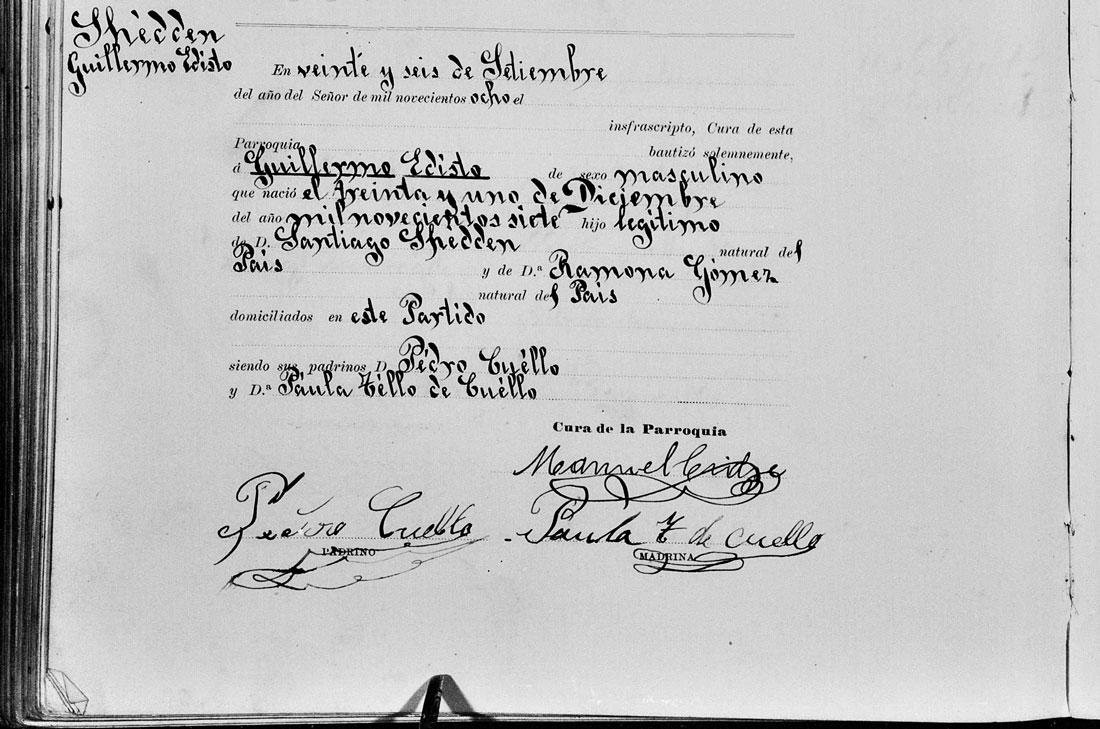 Shédden
Guillermo Edisto
En veinté y seis de Setiembre
del año del Señor de mil novecientos ocho el
insfrascripto, Cura de esta
Parroquia bautizó solemnemente,
á Guillermo Edisto de sexo masculino
que nació el treinta y uno de Diciembre
del año mil novecientos siete hijo legítimo
de D. Santiago Shedden natural del
País y de D.ª Ramona Gómez
natural del País
domiciliados en este Partido
siendo sus padrinos D. Pédro Cuéllo
y D.ª Páula Téllo de Cuéllo
Cura de la Parroquia
Manuel
Pedro Cuello Paula T de Cuello
PADRINO MADRINA